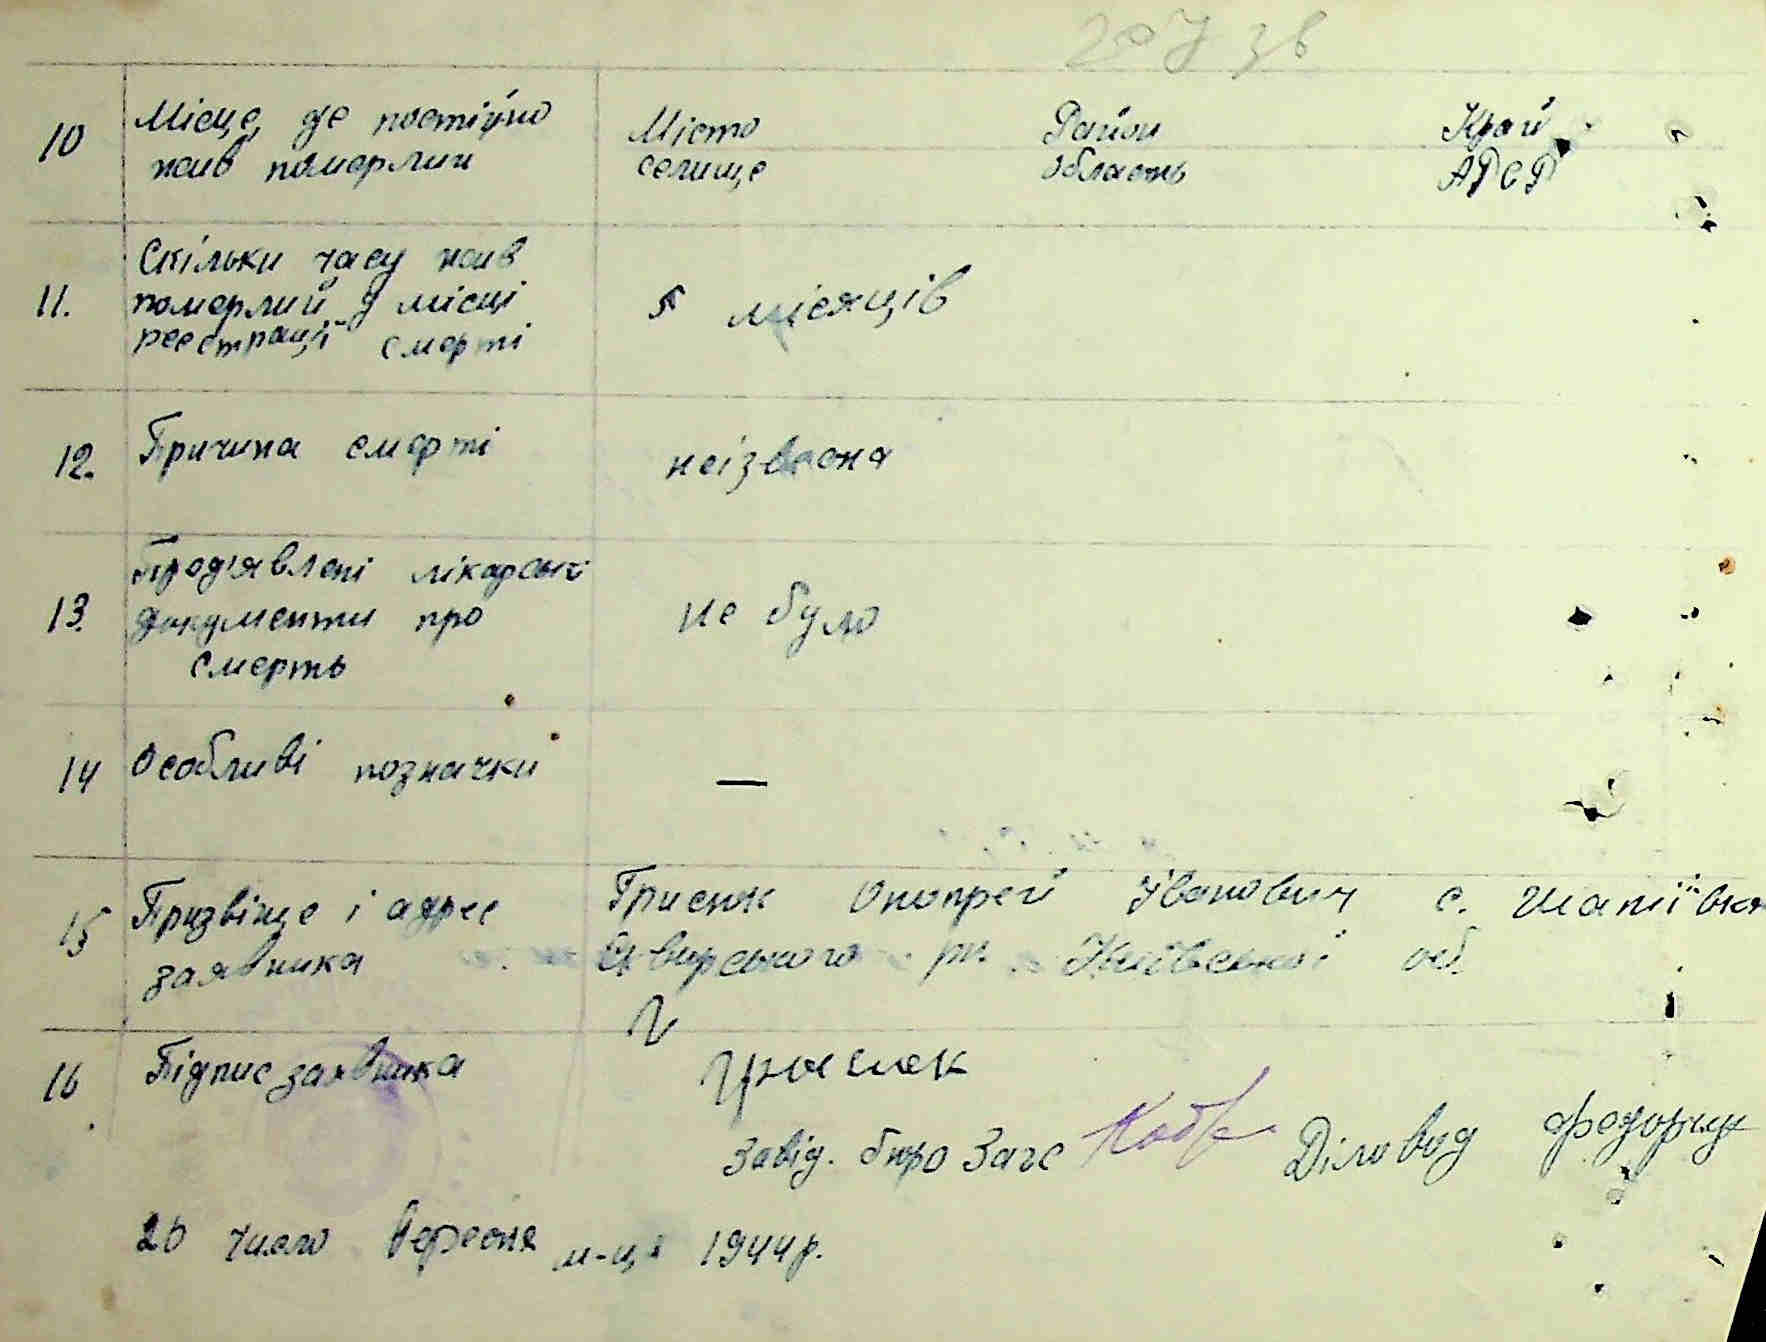 207 зв
10 Місце, де постійно Місто Район Край
жив померлий селище область АРСР
Скільки часу жив
11. померлий у місці 5 місяців
реєстрації смерті
12. Причина смерті неізвесна
Прод'явлені лікарські
13. документи про не було
смерть
14 Особливі позначки —
15 Призвіще і адрес Грисюк Іванович с. Шапіївка
заявника Сквирського рн. Київської об.
16 Підпис заявника
Завід. бюро Загс Діловод Федорчук
26 число вересня м-ця 1944р.